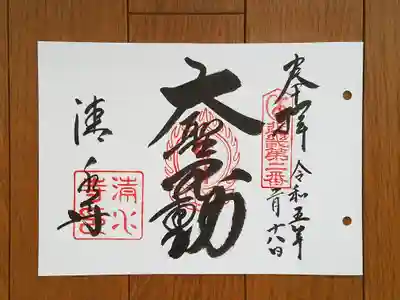 奉拝
第二番
令和五年
月十八日
大聖不動
清水寺
清水
寺印